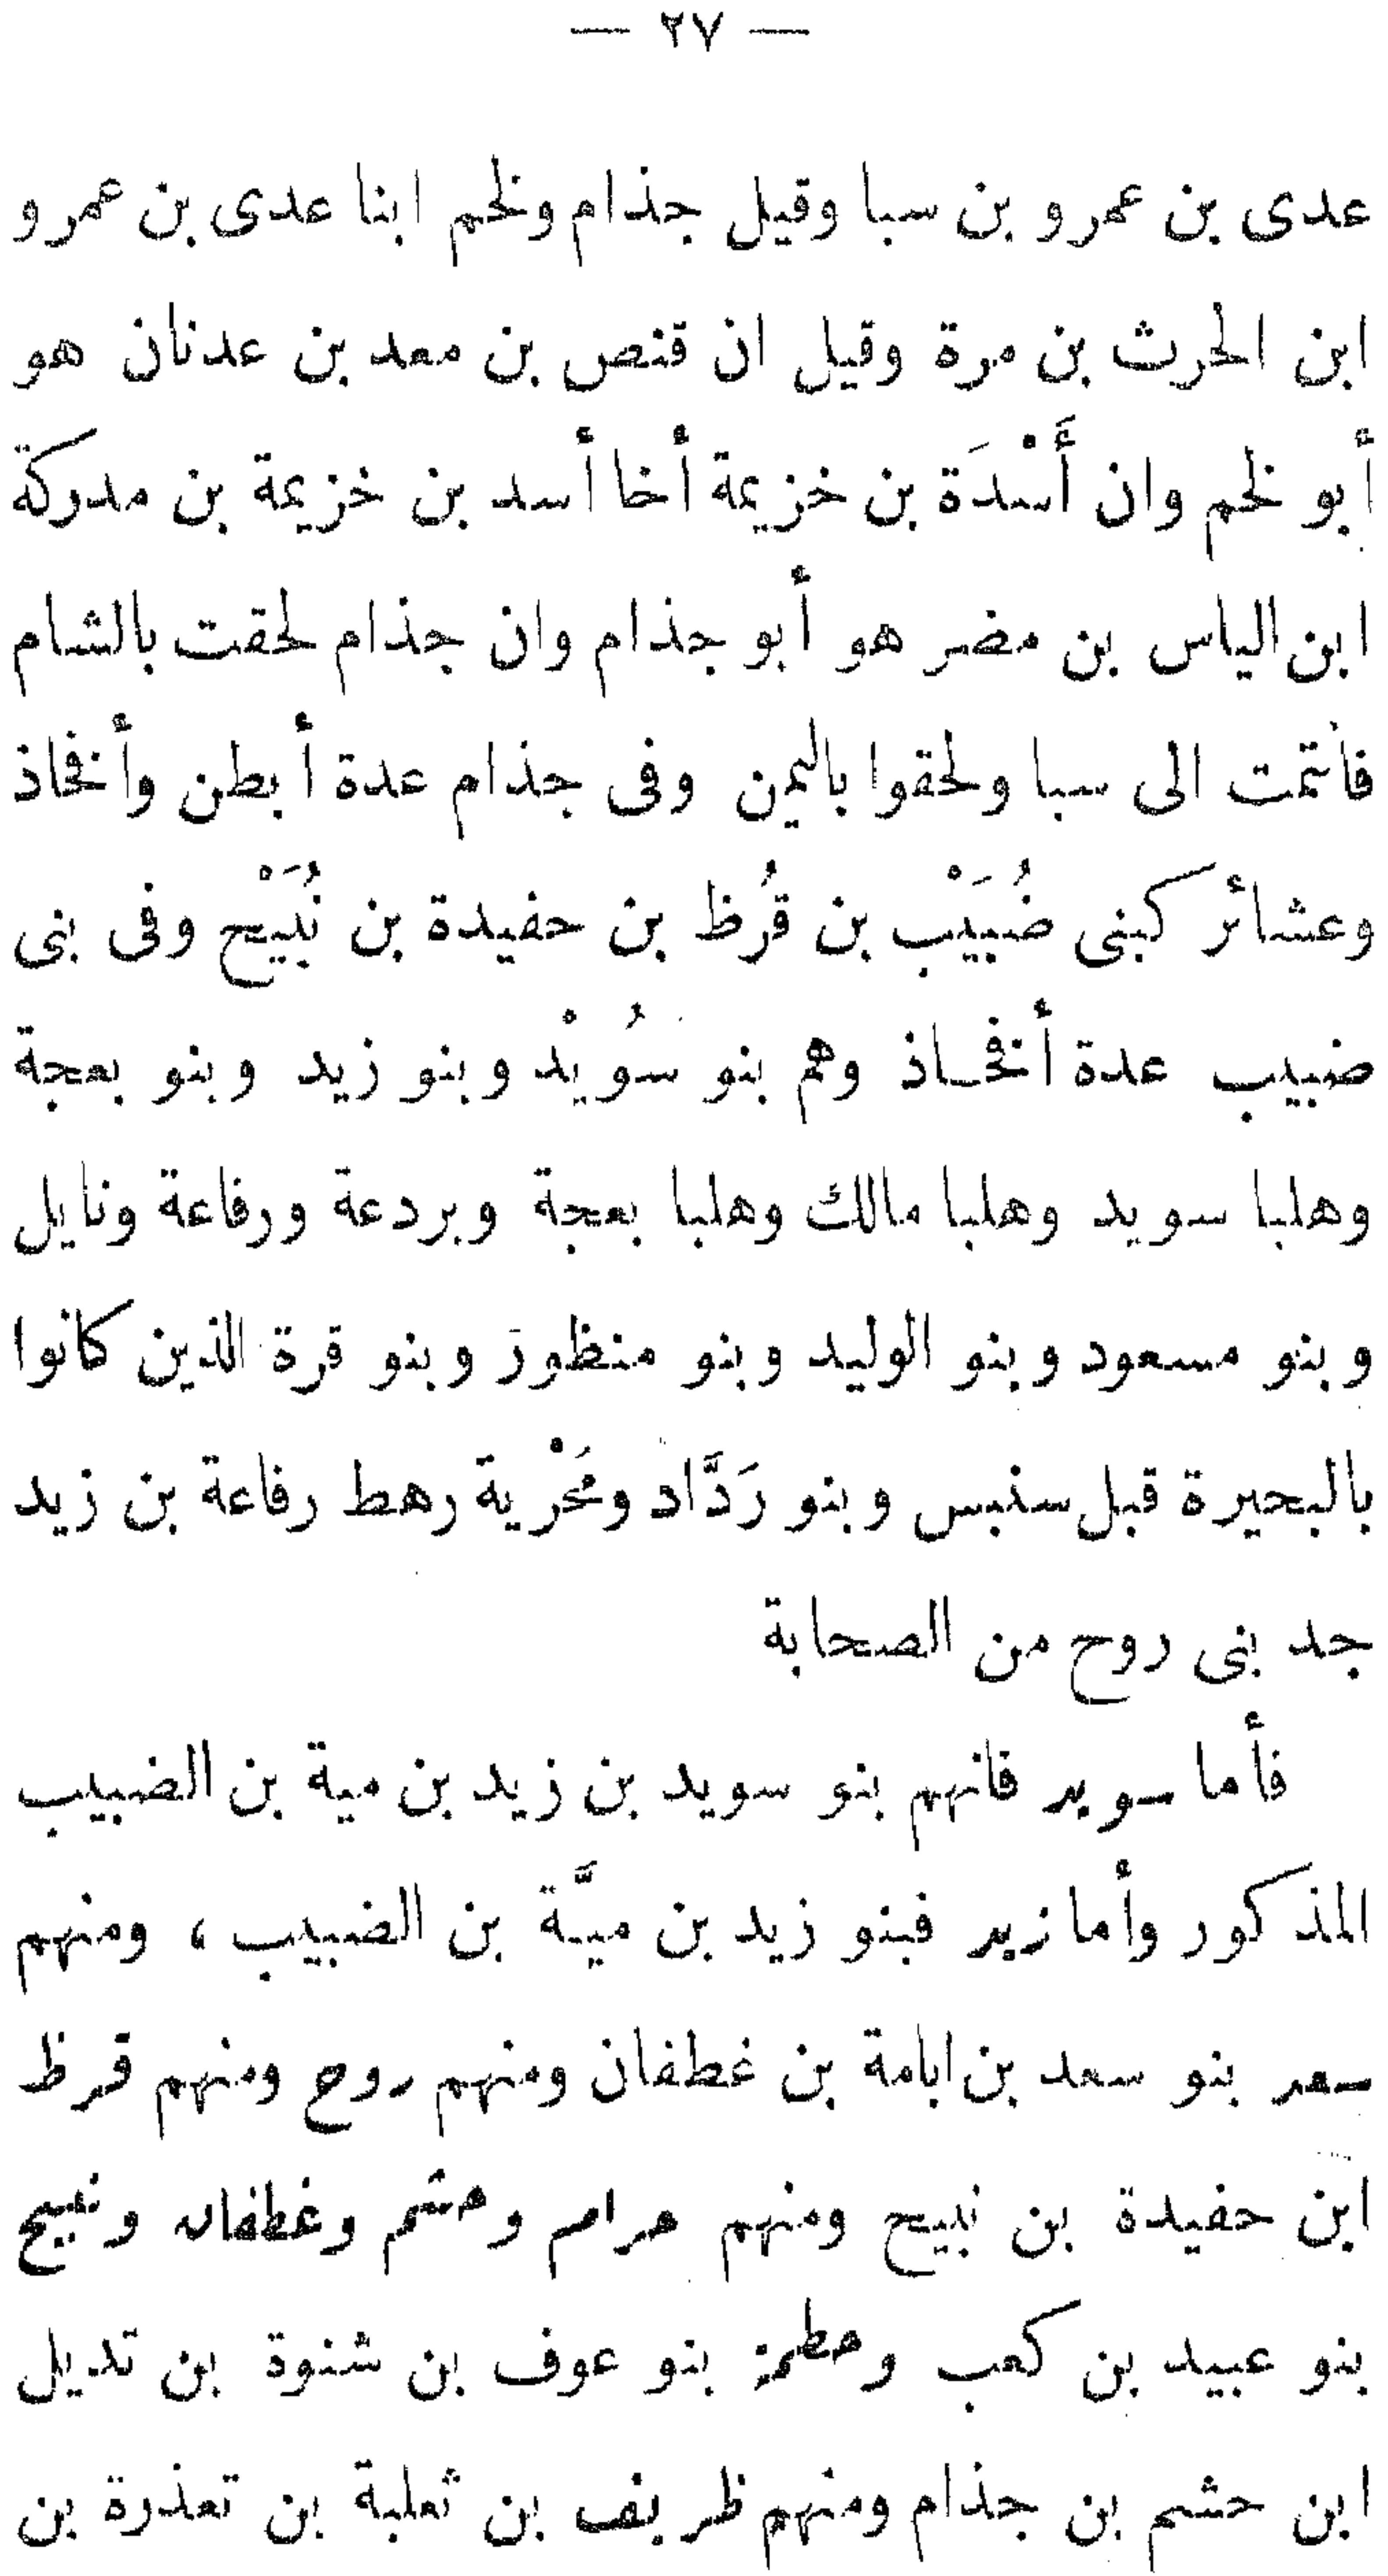 — ٢٧ —
عدى بن عمرو بن سبا وقيل جذام ولخم ابنا عدى بن عمرو
ابن الحرث بن مرة وقيل ان قنص بن معد بن عدنان هو
أبو لخم وان أَسْدَة بن خزيمة أخا أسد بن خزيمة بن مدركة
ابن الياس بن مضر هو أبو جذام وان جذام لحقت بالشام
فأتمت الى سبا ولحقوا باليمن وفى جذام عدة أبطن وأفخاذ
وعشائر كبنى ضُبَيْب بن قُرظ بن حفيدة بن نُبَيْح وفى بنى
ضبيب عدة أفخاذ وهم بنو سُويْد وبنو زيد وبنو بعجة
وهلبا سويد وهلبا مالك وهلبا بعجة وبردعة ورفاعة ونايل
وبنو مسعود وبنو الوليد وبنو منظور وبنو قرة الذين كانوا
بالبحيرة قبل سنبس وبنو رَدَّاد ومَخْرية رهط رفاعة بن زيد
جد بنى روح من الصحابة
فأما سويد فانهم بنو سويد بن زيد بن مية بن الضبيب
المذكور وأما زيد فبنو زيد بن ميَّة بن الضبيب ، ومنهم
سعد بنو سعد بن ابامة بن غطفان ومنهم روح ومنهم قرظ
ابن حفيدة بن نبيح ومنهم حرام وحشم وغطفان ونبيح
بنو عبيد بن كعب وحطمة بنو عوف بن شنوة بن تديل
ابن حشم بن جذام ومنهم ظريف بن ثعلبة بن تعذرة بن